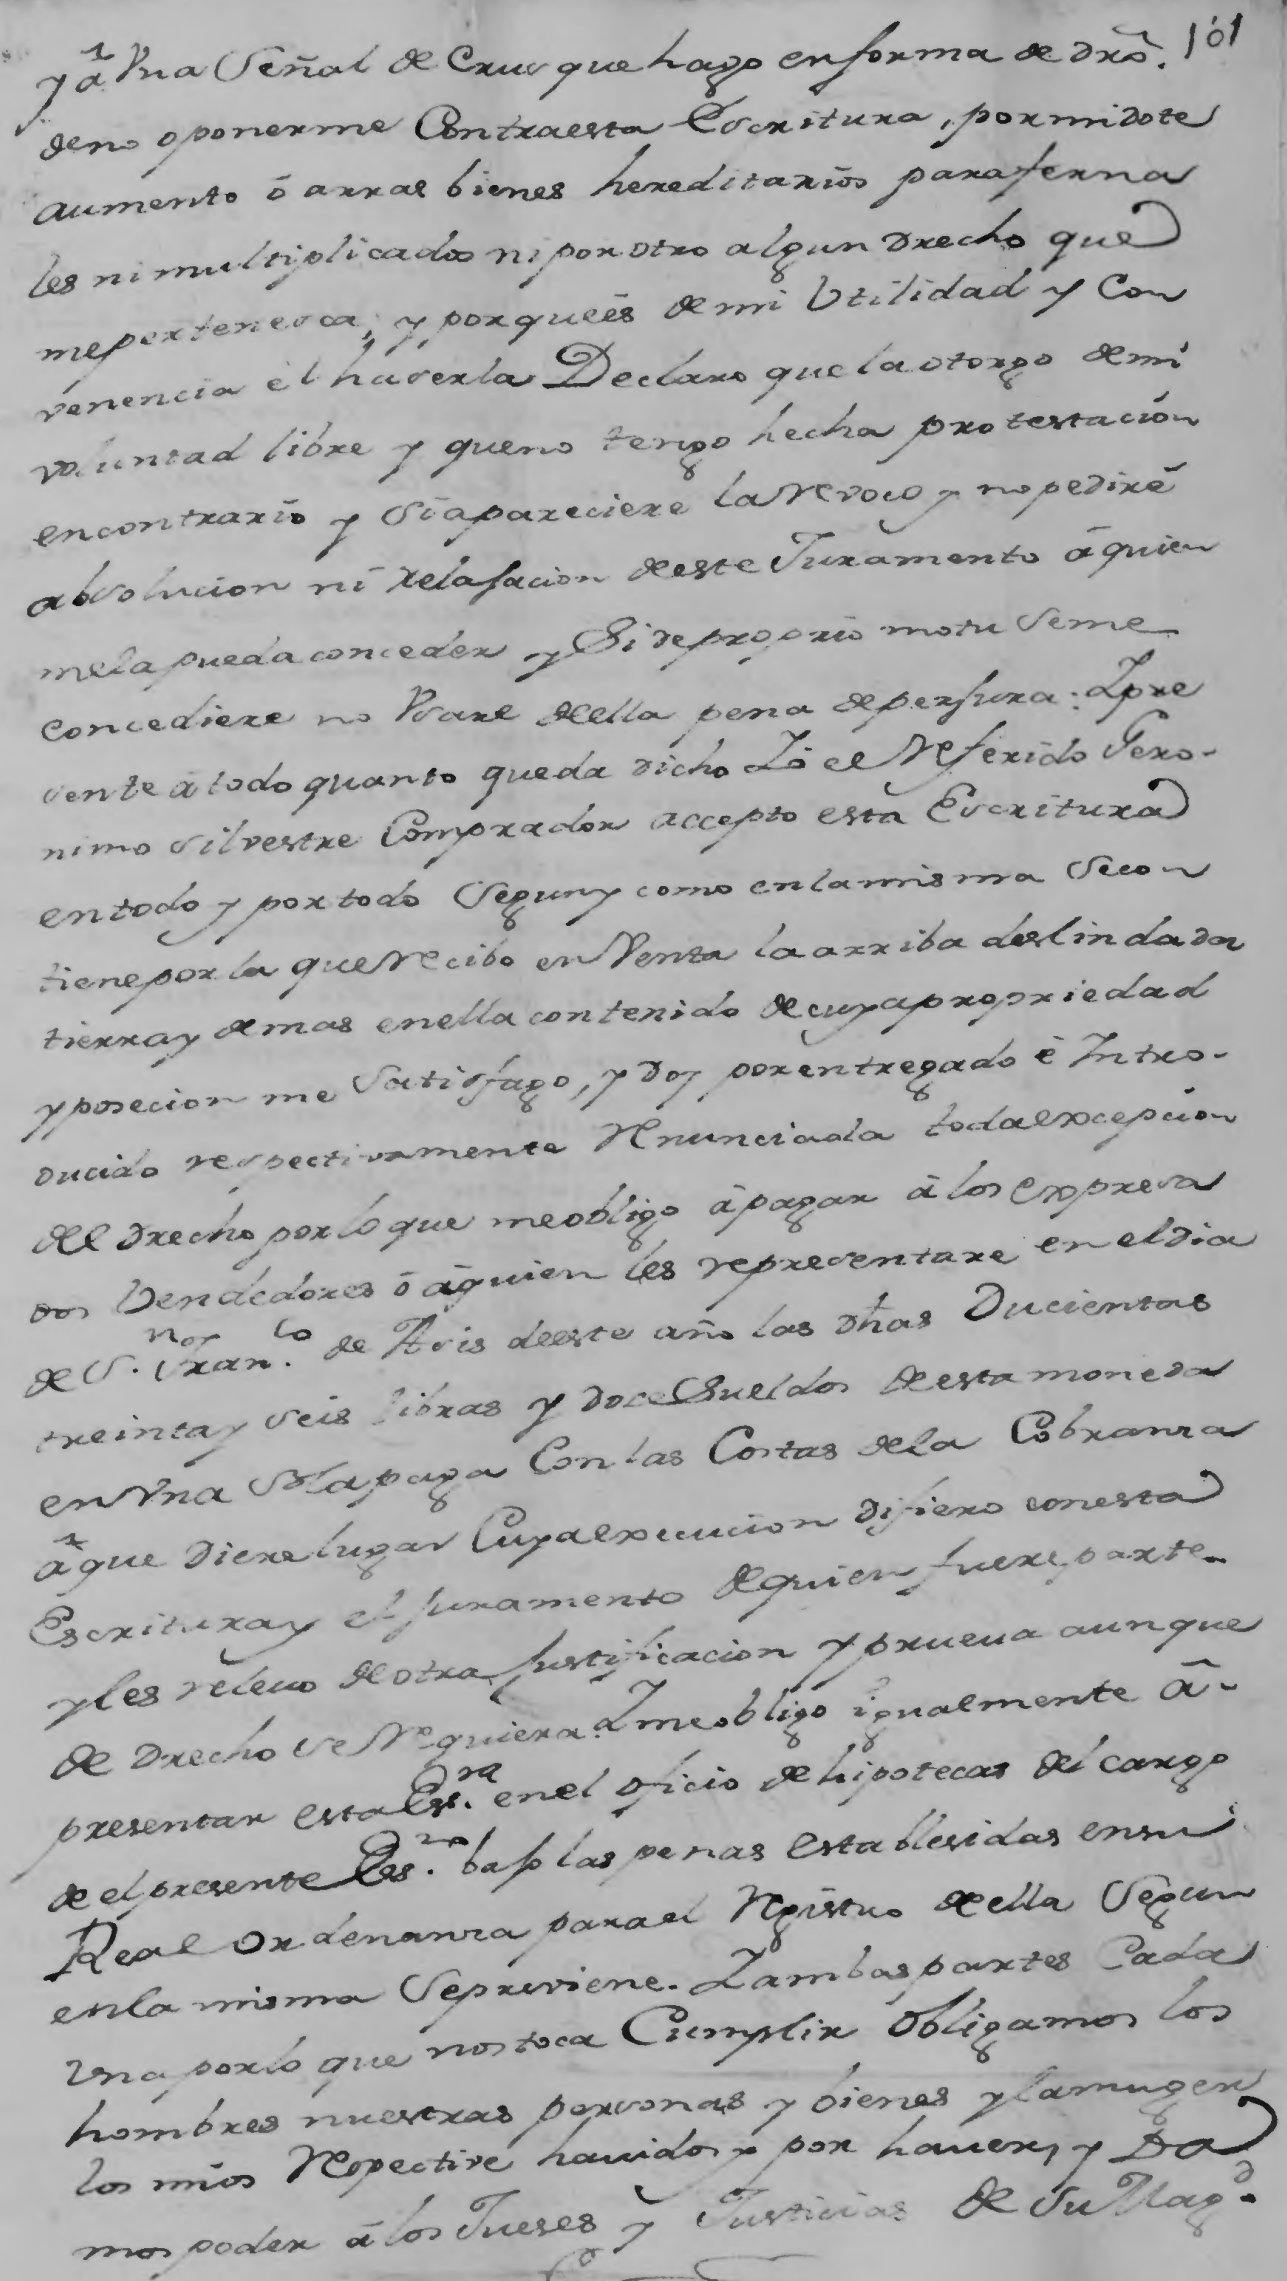 101
y â Vna Señal de Crus que hago en forma de dro.
de no oponerme Contra esta Escritura, por mi dote
aumento ô arras bienes hereditarios paraferna
les ni multiplicados ni por otro algun drecho que
me pertenesca; y por que es de mi Utilidad y Con
venencia el haserla Declaro que la otorgo de mi
voluntad libre y que no tengo hecha protestación
en contrario y si apareciere la revoco y no pediré
absolucion ni relajacion de este Juramento â quien
me la pueda conceder y Si de proprio motu se me
concediere no Vsare de ella pena de perjura: Y pre
sente â todo quanto queda dicho Yo el Referido Gero-
nimo Silvestre Comprador accepto esta Escritura
en todo y por todo Segun y como en la misma se con
tiene por la que recibo en Venta la arriba deslindada
tierra y demas en ella contenido de cuya propriedad
y posecion me satisfago, y doy por entregado ê Intro-
ducido respectivamente Renunciada toda excepcion
del drecho por lo que me obligo â pagar â los expresa
dos Vendedores ô â quien les representare en el dia
de S.n Fran.co de Asis de este año las dhas Ducientas
treinta y seis libras y doce Sueldos de esta moneda
en Vna sola paga Con las Costas de la Cobranza
â que diere lugar Cuya execucion difiero con esta
Escritura y el juramento de quien fuere parte
y les relevo de otra justificacion y prueva aunque
de drecho se Requiera. Y me obligo igualmente â
presentar esta Es.ra en el oficio de hipotecas del cargo
de el presente Es.no bajo las penas establesidas en su
Real Ordenanza para el Registro de ella Segun
en la misma se previene. Y ambas partes Cada
Vna por lo que nos toca Cumplir Obligamos los
hombres nuestras personas y bienes y la muger
los mios Respective havidos y por haver, y Da
mos poder â los Jueses y Justicias de Su Mag.d